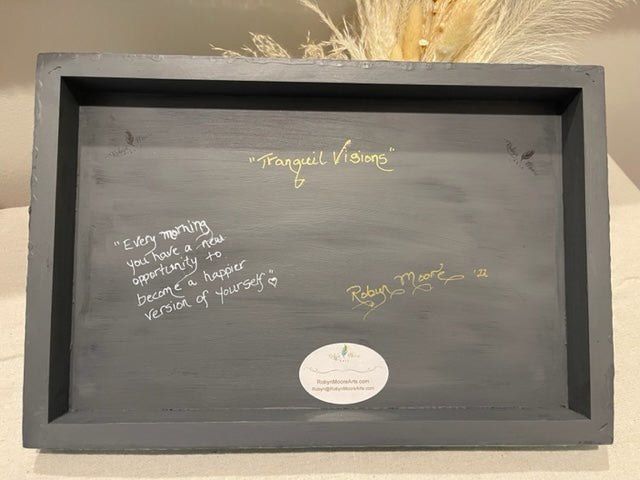 "Tranquil Visions"
"Every morning
you have a new
opportunity to
become a happier
version of yourself"
Robyn Moore '22
RobynMooreArts.com
Robyn@RobynMooreArts.com